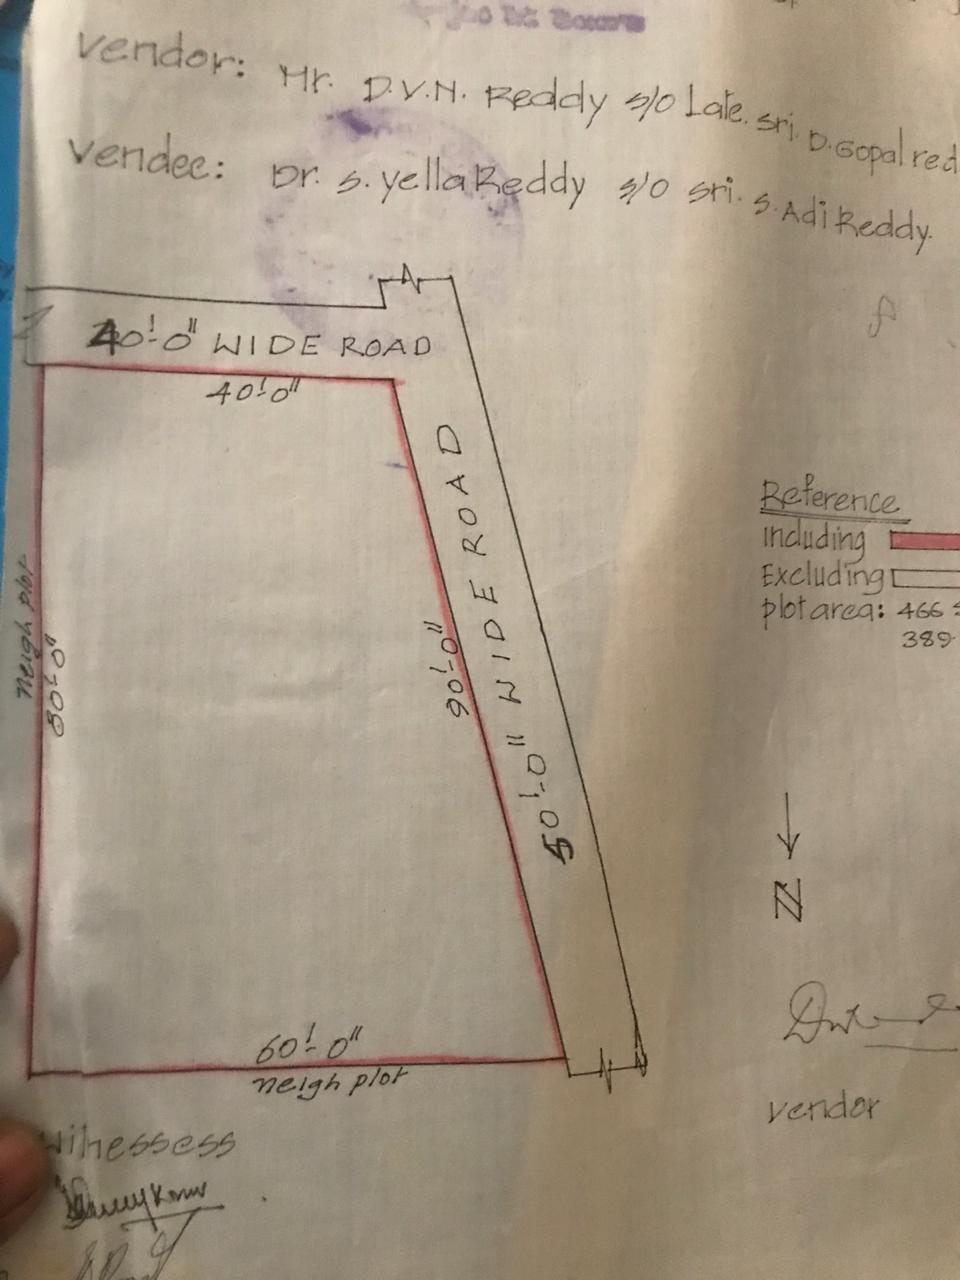 Vendor: Mr. D.V.N. Reddy s/o Late. Sri. D. Gopal red
Vendee: Dr. S. yella Reddy s/o Sri. S. Adi Reddy.
40'-0" WIDE ROAD
40'-0"
50'-0" WIDE ROAD
90'-0"
neigh plot
80'-0"
60'-0"
neigh plot
Reference
Including
Excluding
plot area: 466
389
N
vendor
Witnessess